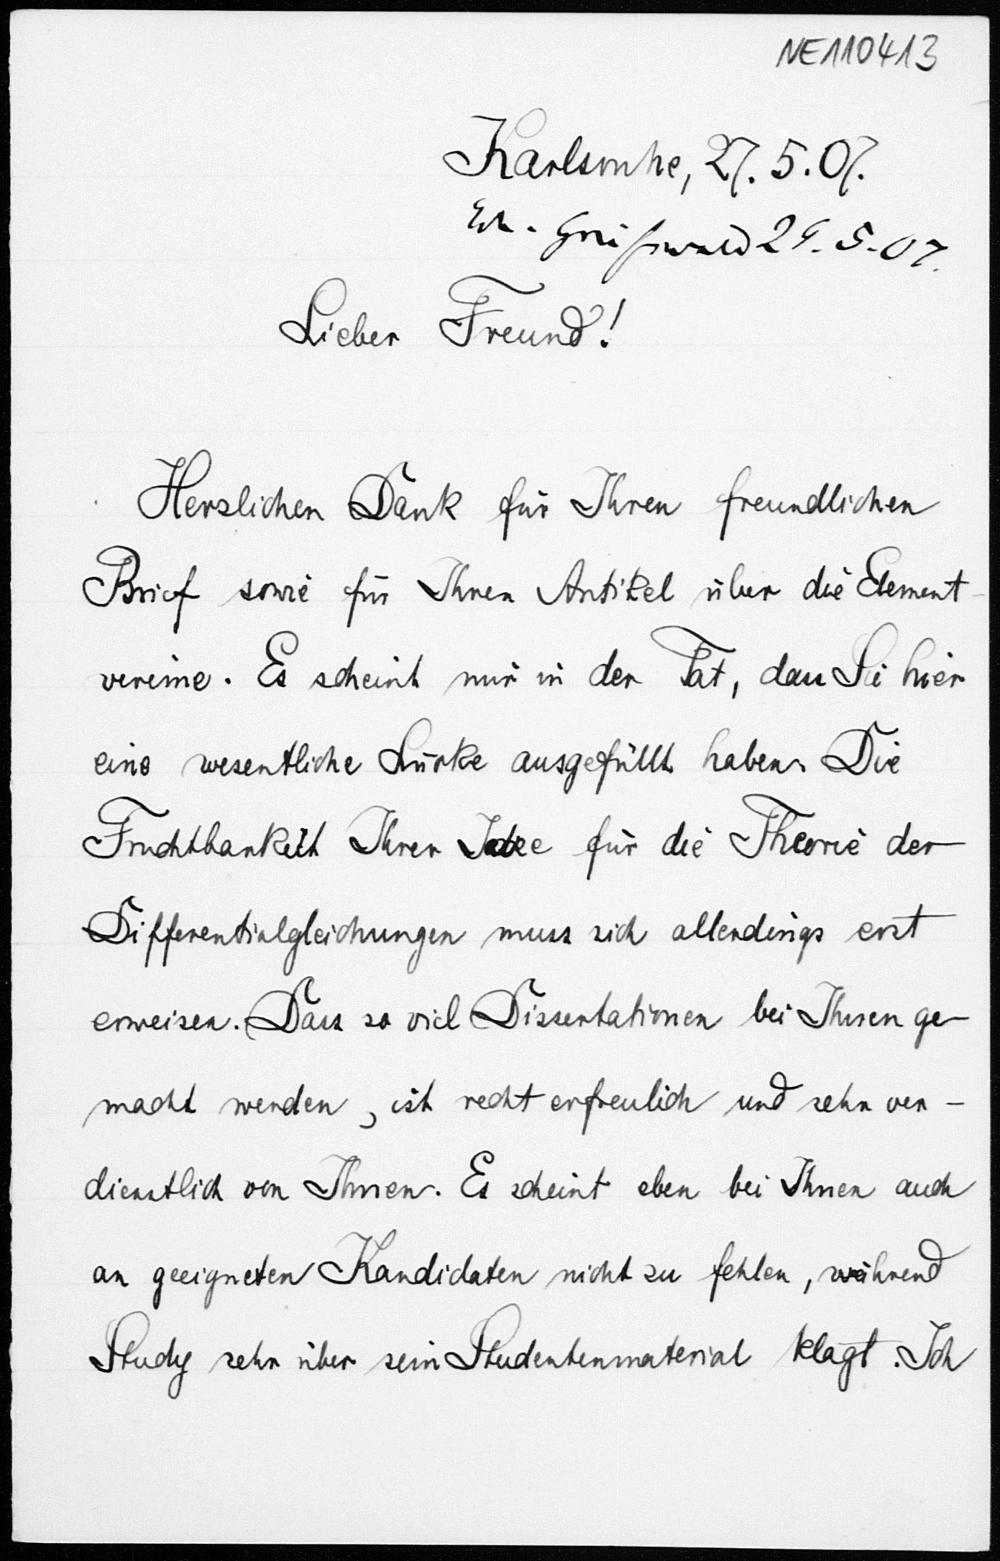 NE110413
Karlsruhe, 27. 5. 07.
Erh. Greifswald 29. 5. 07.
Lieber Freund!
Herzlichen Dank für Ihren freundlichen
Brief sowie für Ihren Artikel über die Element-
vereine. Es scheint mir in der Tat, dass Sie hier
eine wesentliche Lücke ausgefüllt haben. Die
Fruchtbarkeit Ihrer Idee für die Theorie der
Differentialgleichungen muss sich allerdings erst
erweisen. Dass so viel Dissertationen bei Ihnen ge-
macht werden, ist recht erfreulich und sehr ver-
dienstlich von Ihnen. Es scheint eben bei Ihnen auch
an geeigneten Kandidaten nicht zu fehlen, während
Study sehr über sein Studentenmaterial klagt. Ich